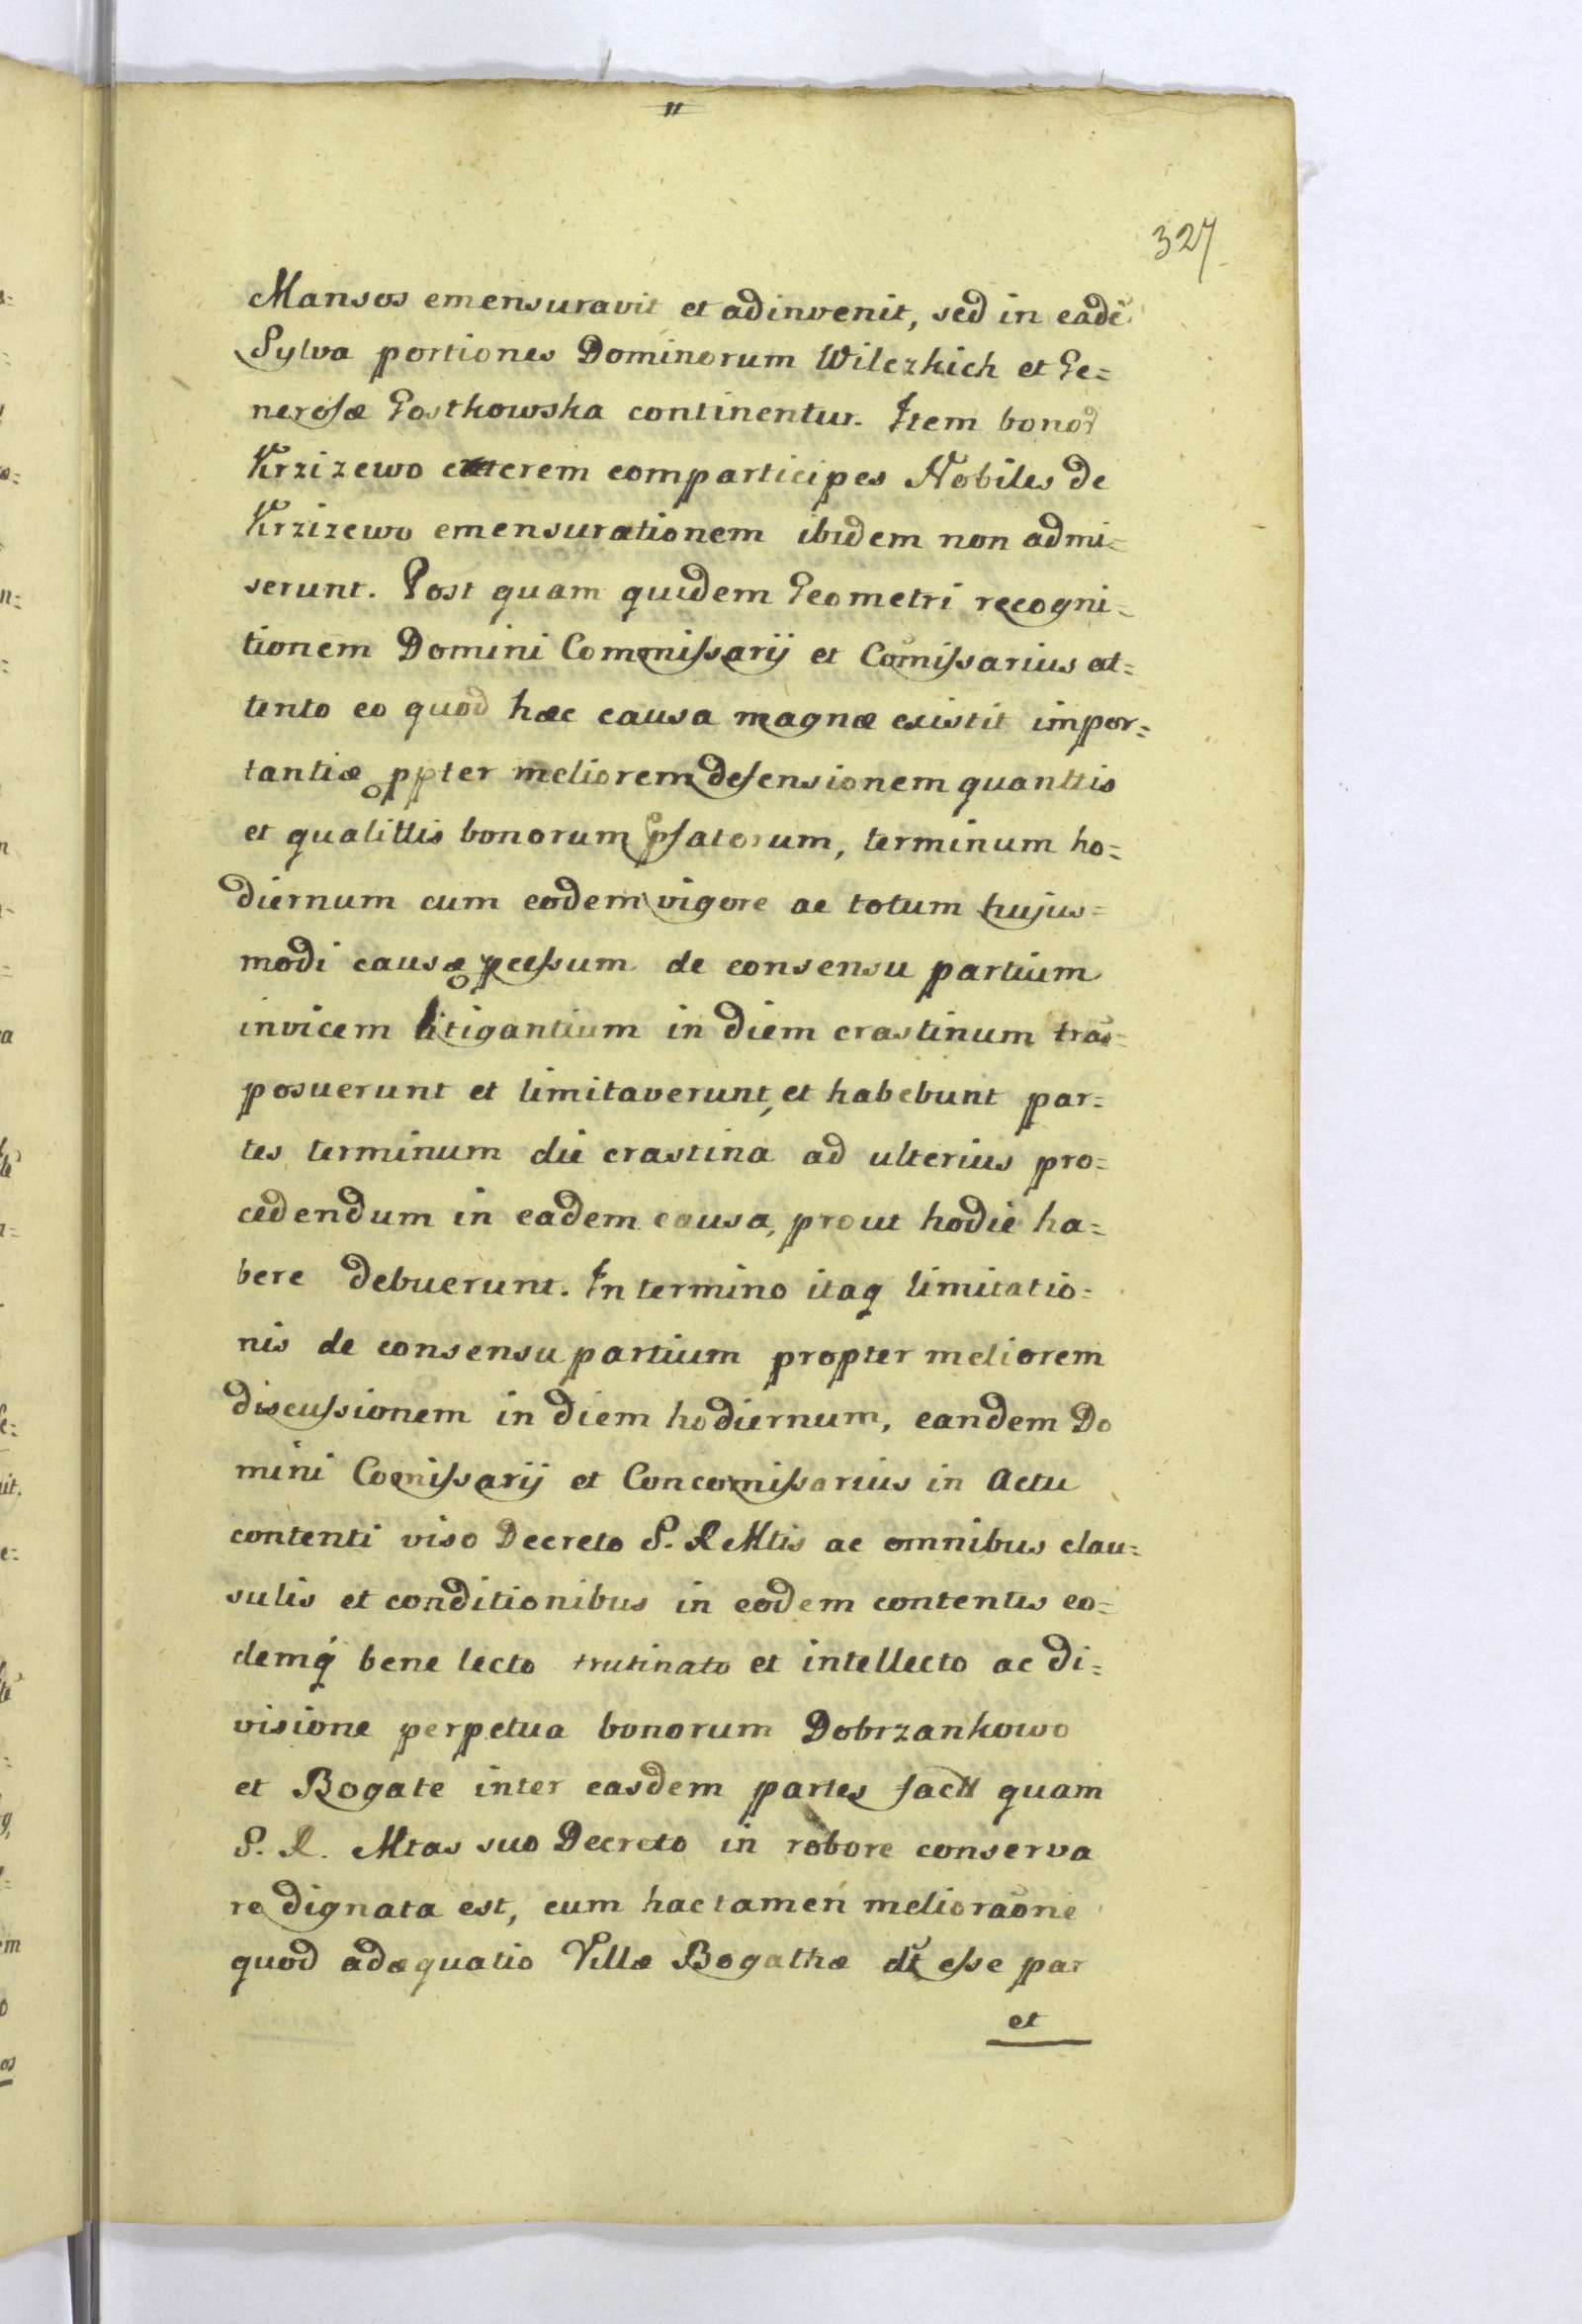 "
327
Mansos emensuravit et adinvenit, sed in eadẽ
Sylva portiones Dominorum Wilczkich et Ge=
nerosæ Gostkowska continentur. Item bonoꝝ
Krzizewo cæterem comparticipes Nobiles de
Krzizewo emensurationem ibidem non admi=
serunt. Post quam quidem Geometri recogni=
tionem Domini Commissarij et Com̃issarius at=
tento eo quod hæc causa magnæ existit impor=
tantiæ ppter meliorem defensionem quanttis
et qualittis bonorum pſatorum, terminum ho=
diernum cum eodem vigore ac totum hujus=
modi causæ pcessum de consensu partium
invicem litigantium in diem crastinum trãs=
posuerunt et limitaverunt, et habebunt par=
tes terminum die crastina ad ulterius pro=
cedendum in eadem causa, prout hodie ha=
bere debuerunt. In termino itaq limitatio=
nis de consensu partium propter meliorem
discussionem in diem hodiernum, eandem Do
mini Com̃issarij et Concom̃issarius in Actu
contenti viso Decreto S. R Mtis ac omnibus clau=
sulis et conditionibus in eodem contentis eo=
demq́ bene lecto trutinato et intellecto ac di=
visione perpetua bonorum Dobrzankowo
et Bogate inter easdem partes factt quam
S. R. Mtas suo Decreto in robore conserva
re dignata est, cum hac tamen meliorãone
quod adæquatio Villæ Bogathæ dt̃ esse par
et